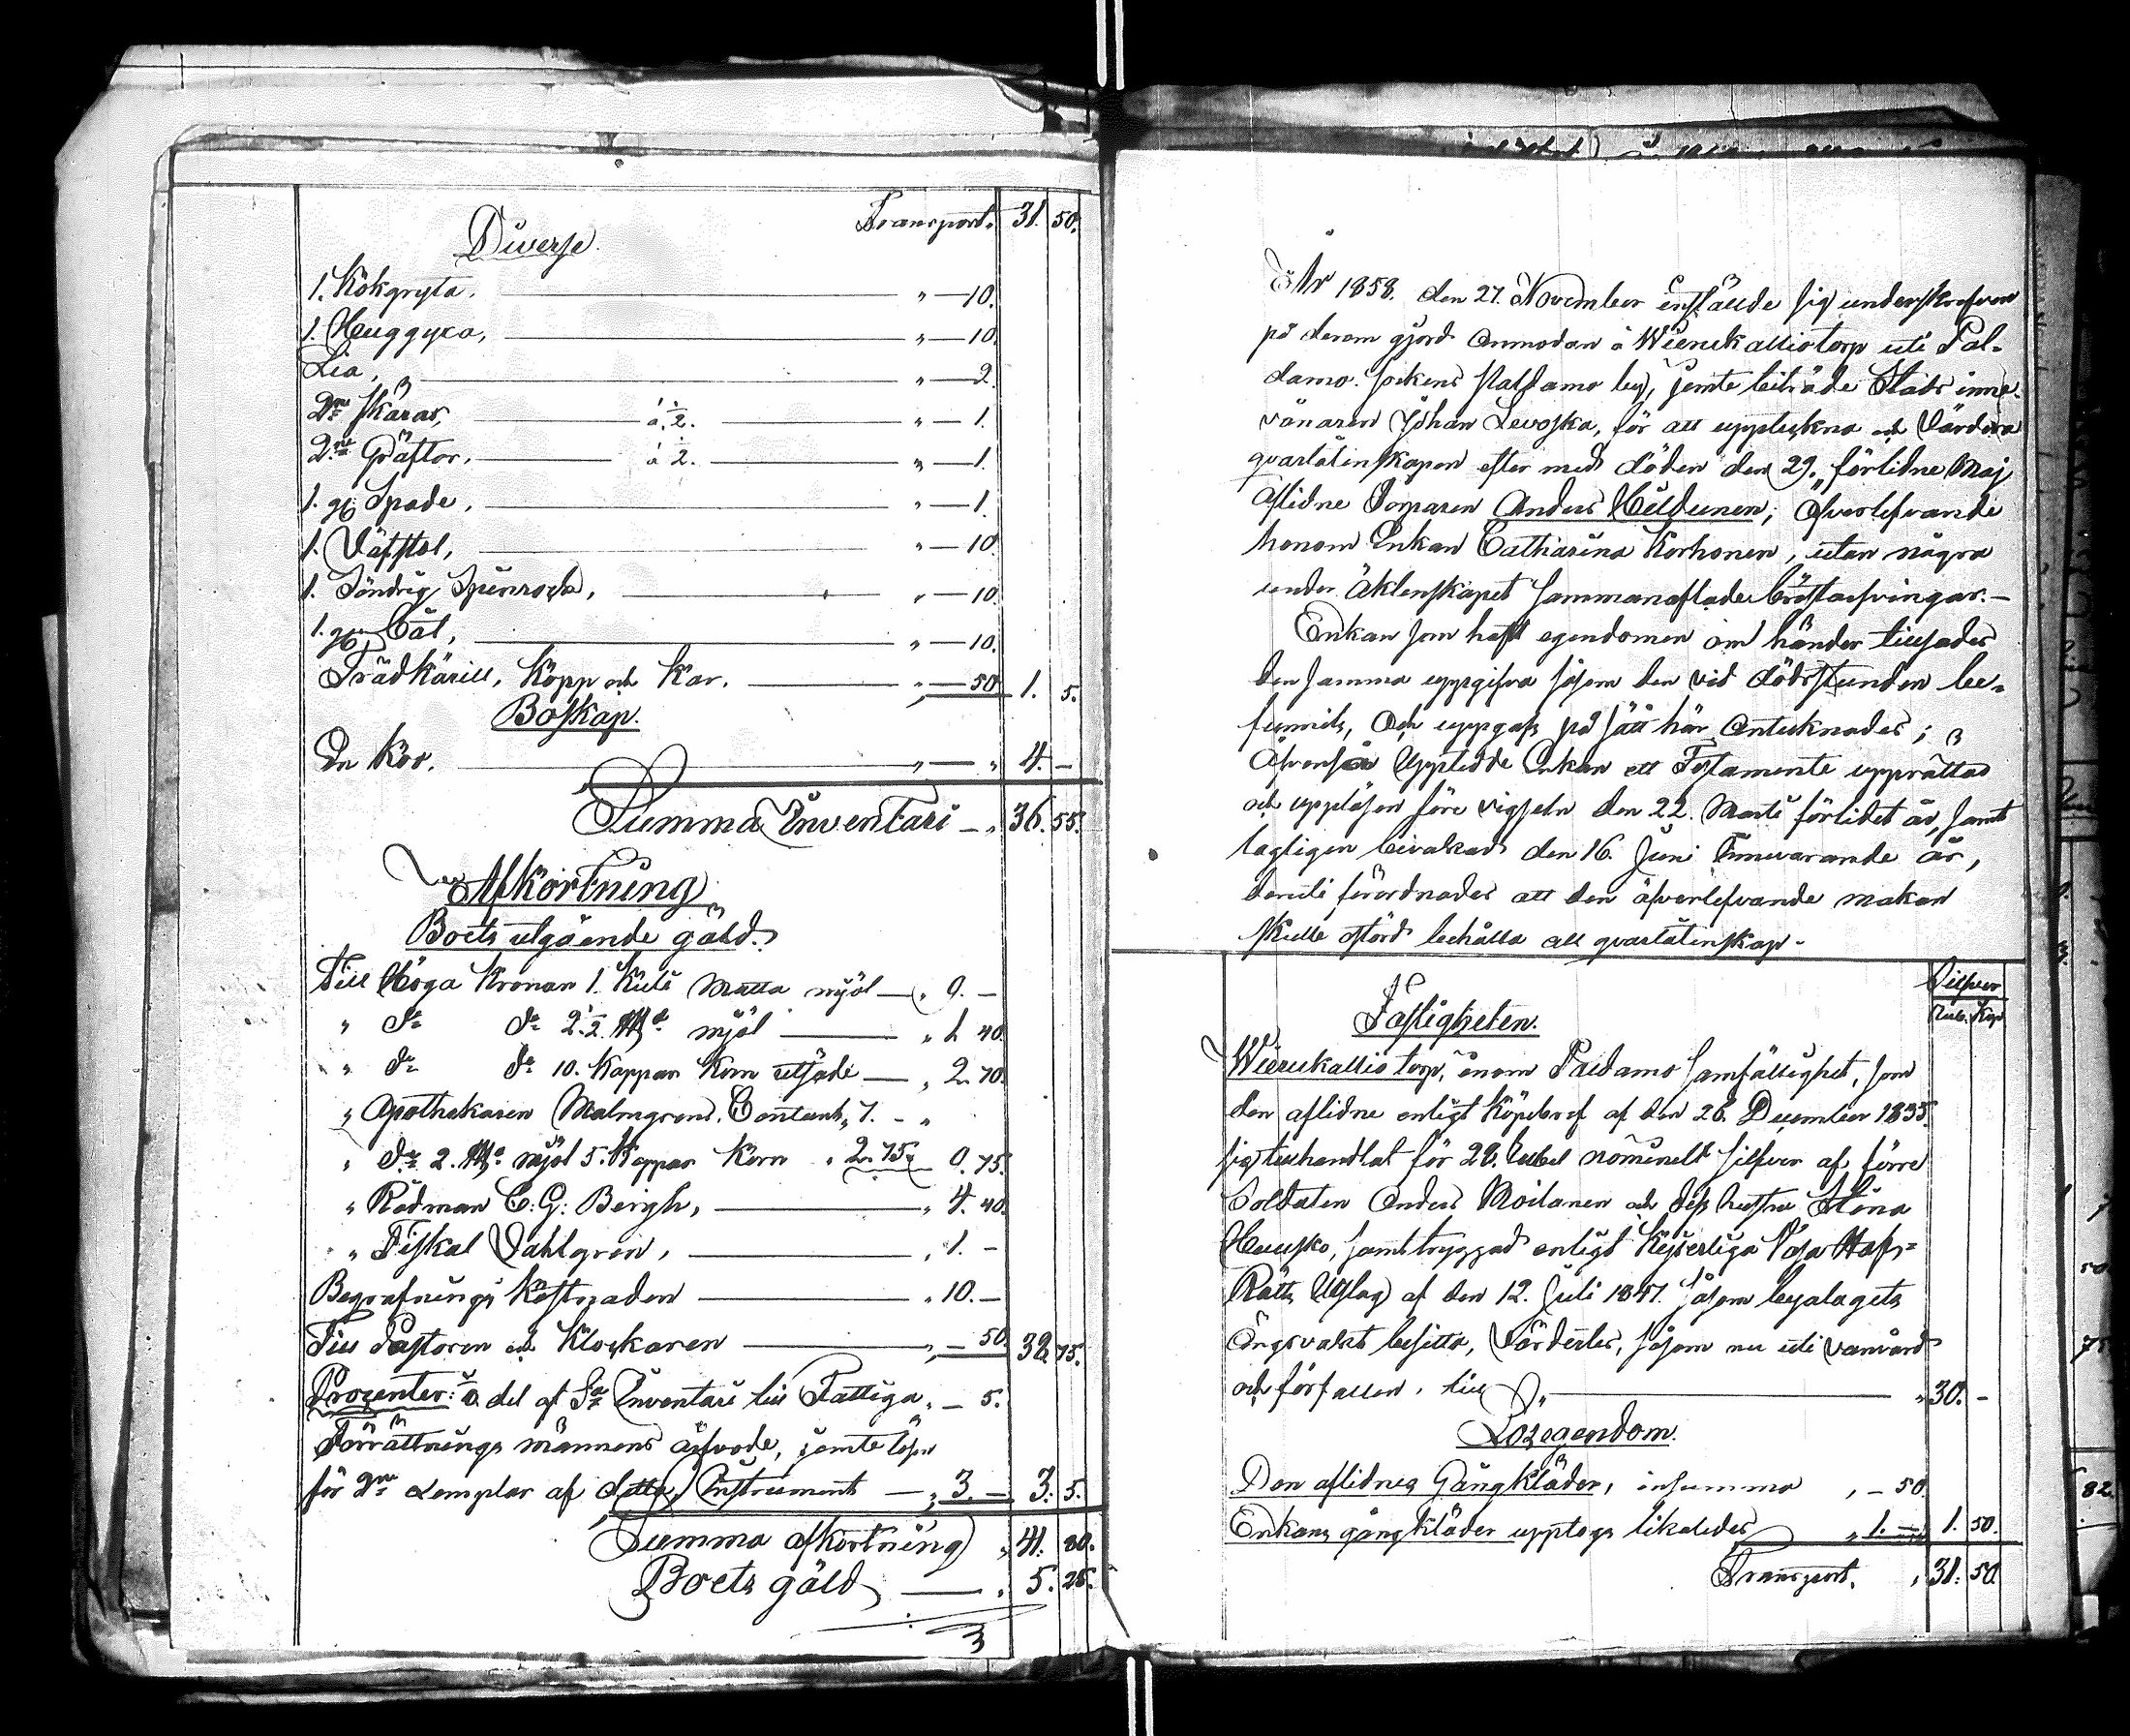 Transport. 31. 50.
Diverse
1. Kokgryta, " — 10.
1. Huggyxa, " — 10.
Lia, " — 2.
2ne Skäror, à ½. " — 1.
2ne Gräftor, à ½. " — 1.
1. gl Spade, " — 1.
1. Väfstol, " — 10.
1. Söndrig Spinrock, " — 10.
1. gl Båt, " — 10.
Trädkärill, Kopp och Kar. " — 50. 1. 5.
Boskap.
En Kor. " — " 4. —
Summa Inventarii — " 36. 55.
Afkortning
Boets utgående gäld.
Till Höga Kronan 1. Kuli Matta mjöl — " 9. —
" do do 2½. L℔ mjöl " 1. 40.
" do do 10. Kappar Korn utsäde — " 2. 70.
" Apothekaren Malmgren, Contant " 7. — "
" do 2. L℔ mjöl 5. Kappar Korn " 2. 75. 9. 75.
" Rådman C. G. Bergh, " 4. 40.
" Fiskal Dahlgren, " 1. —
Begrafnings Kostnaden " 10. —
Till Pastoren och Klockaren " — 50. 38. 75.
Prozenter: del af Sa Inventarii till Fattiga " — 5.
Förrättnings männens arfvode, jemte lösen
för 2ne exemplar af detta Instrument — " 3. — 3. 5.
Summa afkortning " 41. 80.
Boets gäld " 5. 25.
År 1858. den 27. November inställde sig underskrefven
på derom gjord anmodan å Wierukalliotorp uti Pal-
damo Sockens Paldamo by, jemte biträde Stads inne-
vånaren Johan Levoska, för att uppteckna och Värdera
qvarlåtenskapen efter med döden den 29. förlidne Maj
aflidne Torparen Anders Heldunen, Öfverlefvande
honom Enkan Catharina Korhonen, utan några
under Äktenskapet Sammanaflade bröstarfvingar. —
Enkan som haft egendomen om händer tillsades
densamma uppgifva såsom den vid dödsstunden be-
funnits, Och uppgafs på sätt här antecknades;
Äfvenså Upptedde Enkan ett Testamente upprättad
och uppläsen före vigseln den 22. Martii förlidet år, samt
lagligen bevakad den 16. Juni Innevarande år,
deruti förordnades att den öfverlefvande makan
skulle ostörd behålla all qvarlåtenskap. —
Silfver
Rub. Kop
Fastigheten.
Wierukallio torp, inom Paldamo Samfällighet, som
den aflidne enligt Köpebref af den 28. December 1835.
sig tillhandlat för 28. Rubel nominelt silfver af förre
Soldaten Anders Moilanen och dess hustru Stina
Heusko, samt tryggad enligt Kejserliga Vasa Hofs-
Rätts Utslag af den 12. Juli 1847. såsom byalagets
Ängsvakt besitta, Värderades, såsom nu uti vanvård
och förfallen, till " 30. —
Lösegendom.
Den aflidnes Gångkläder, insumma " — 50.
Enkans gångkläder upptogs likaledes " 1. — 1. 50.
Transport. " 31. 50.